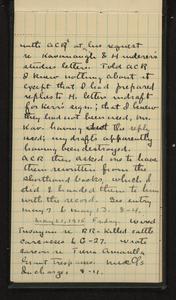 with ACR at his request
re Kavanaugh & H
letters. Told ACR
I knew nothing about it
except that I had prepared
replies to H. letter in draft
for Kerr's sign; that I knew
they had not been used, Mr.
Kav. having the reply
used; my drafts apparently
having been destroyed.
ACR then asked me to have
them rewritten from the
shorthand books, which I
did & handed them to him
with the record. See entry
May 7 & May 13. 8-4.
May 21, 1915 Friday.
re RR-Killed cattle
carcasses 6 G-27. Wrote
re Tierra Amarilla
Grant Trespass.
Discharges 8-4.